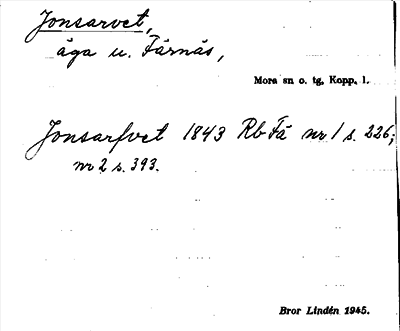 Jonsarvet,
äga u. Färnäs,
Mora sn o. tg, Kopp. l.
Jonsarfvet 1843 Rb Fä nr 1 s. 226;
nr 2 s. 393.
Bror Lindén 1945.